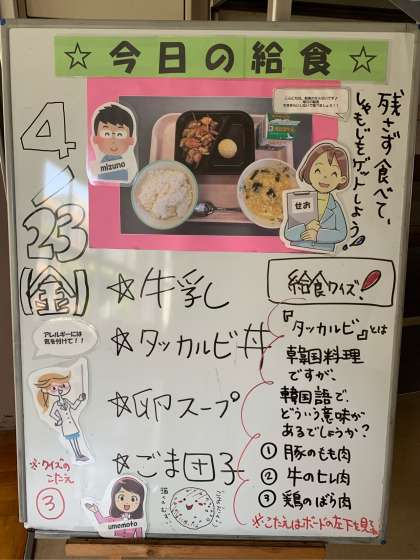 ☆今日の給食☆
4/23(金)
mizuno
せお
残さず食べて、
しゃもじをゲットしよう♪
☆牛乳
☆タッカルビ丼
☆卵スープ
☆ごま団子
アレルギーには
気を付けて!!
※クイズの
こたえ
③
umemoto
給食クイズ!
『タッカルビ』とは
韓国料理
ですが、
韓国語で、
どういう意味が
あるでしょうか?
①豚のもも肉
②牛のヒレ肉
③鶏のばら肉
※こたえはボードの左下を見る